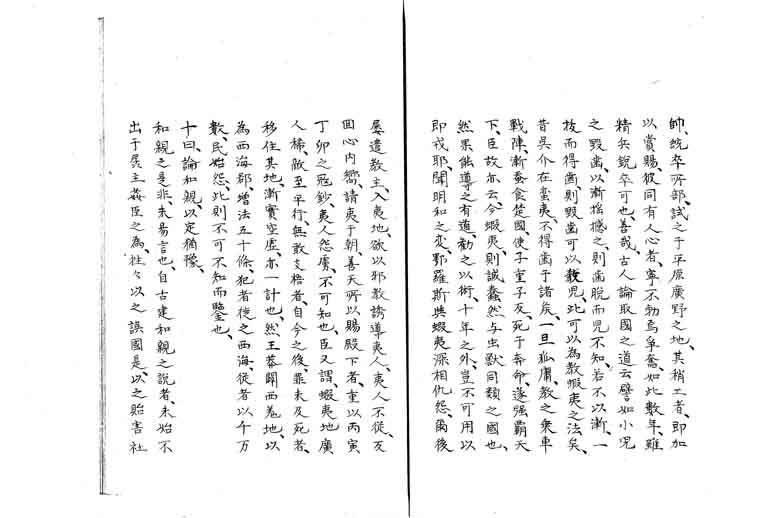 帥、銃卒所部、試之于平原廣野之地、其稍工者、即加
以賞賜、彼同有人心者、寧不勃焉爭奮、如此數年、雖
精兵銳卒可也、善哉、古人論取國之道云、譬如小兒
之毀齒、以漸搖撼之、則齒脫而兒不知、若不以漸、一
拔而得齒、則毀齒可以殺兒、此可以為教蝦夷之法矣、
昔吳介在蛮夷、不得齒于諸侯、一旦狐庸、教之乘車
戰陣、漸蚕食楚國、使子重子反、死于奔命、遂强霸天
下、臣故亦云、今蝦夷則誠蠢然与虫獸同類之國也、
然果能導之有道、勸之以術、十年之外、豈不可用以
即戎耶、聞明和之変、鄂羅斯與蝦夷深相仇怨、爾後
屡遣教主、入夷地、欲以邪教誘導夷人、夷人不從、反
回心内嚮、請夷于朝、善天所以賜殿下者、重以丙寅
丁卯之冦鈔、夷人怨虜、不可知也、臣又謂、蝦夷地廣
人稀、敵至平行、無敢支梧者、自今之後、罪未及死者、
移住其地、漸實空虛、亦一計也、然王莽闢西羗地、以
為西海郡、增法五十條、犯者徙之西海、從者以千万
數、民始怨、此則不可不知而鑒也、
十曰、論和親、以定猶豫、
和親之是非、未易言也、自古建和親之説者、未始不
出于孱主姦臣之為、往々以之誤國是、以之貽害社